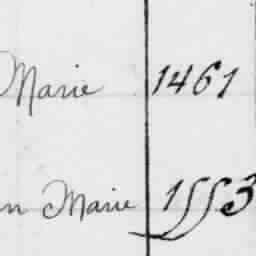 Marie 1461
n Marie 1553